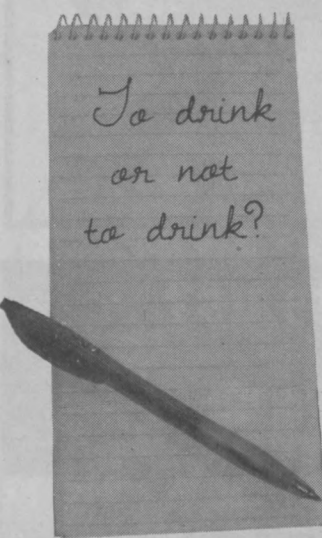 To drink
or not
to drink?